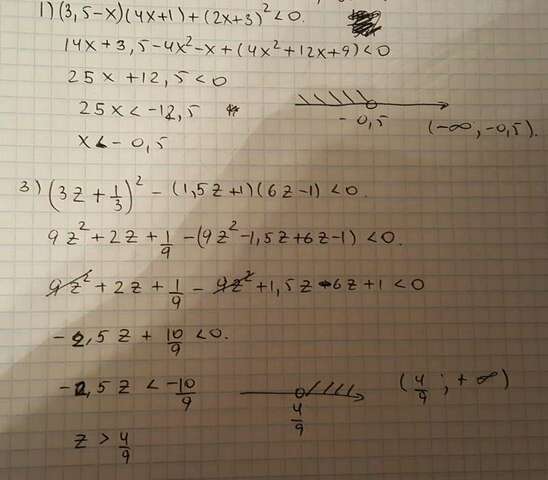 1) (3,5-x)(4x+1)+(2x+3)²<0.
14x+3,5-4x²-x+(4x²+12x+9)<0
25x+12,5<0
25x<-12,5
x<-0,5
-0,5
(-∞; -0,5).
3) (3z+1/3)²-(1,5z+1)(6z-1)<0.
9z²+2z+1/9-(9z²-1,5z+6z-1)<0.
9z²+2z+1/9-9z²+1,5z-6z+1<0
-2,5z+10/9<0.
-2,5z<-10/9
4/9
(4/9; +∞)
z>4/9